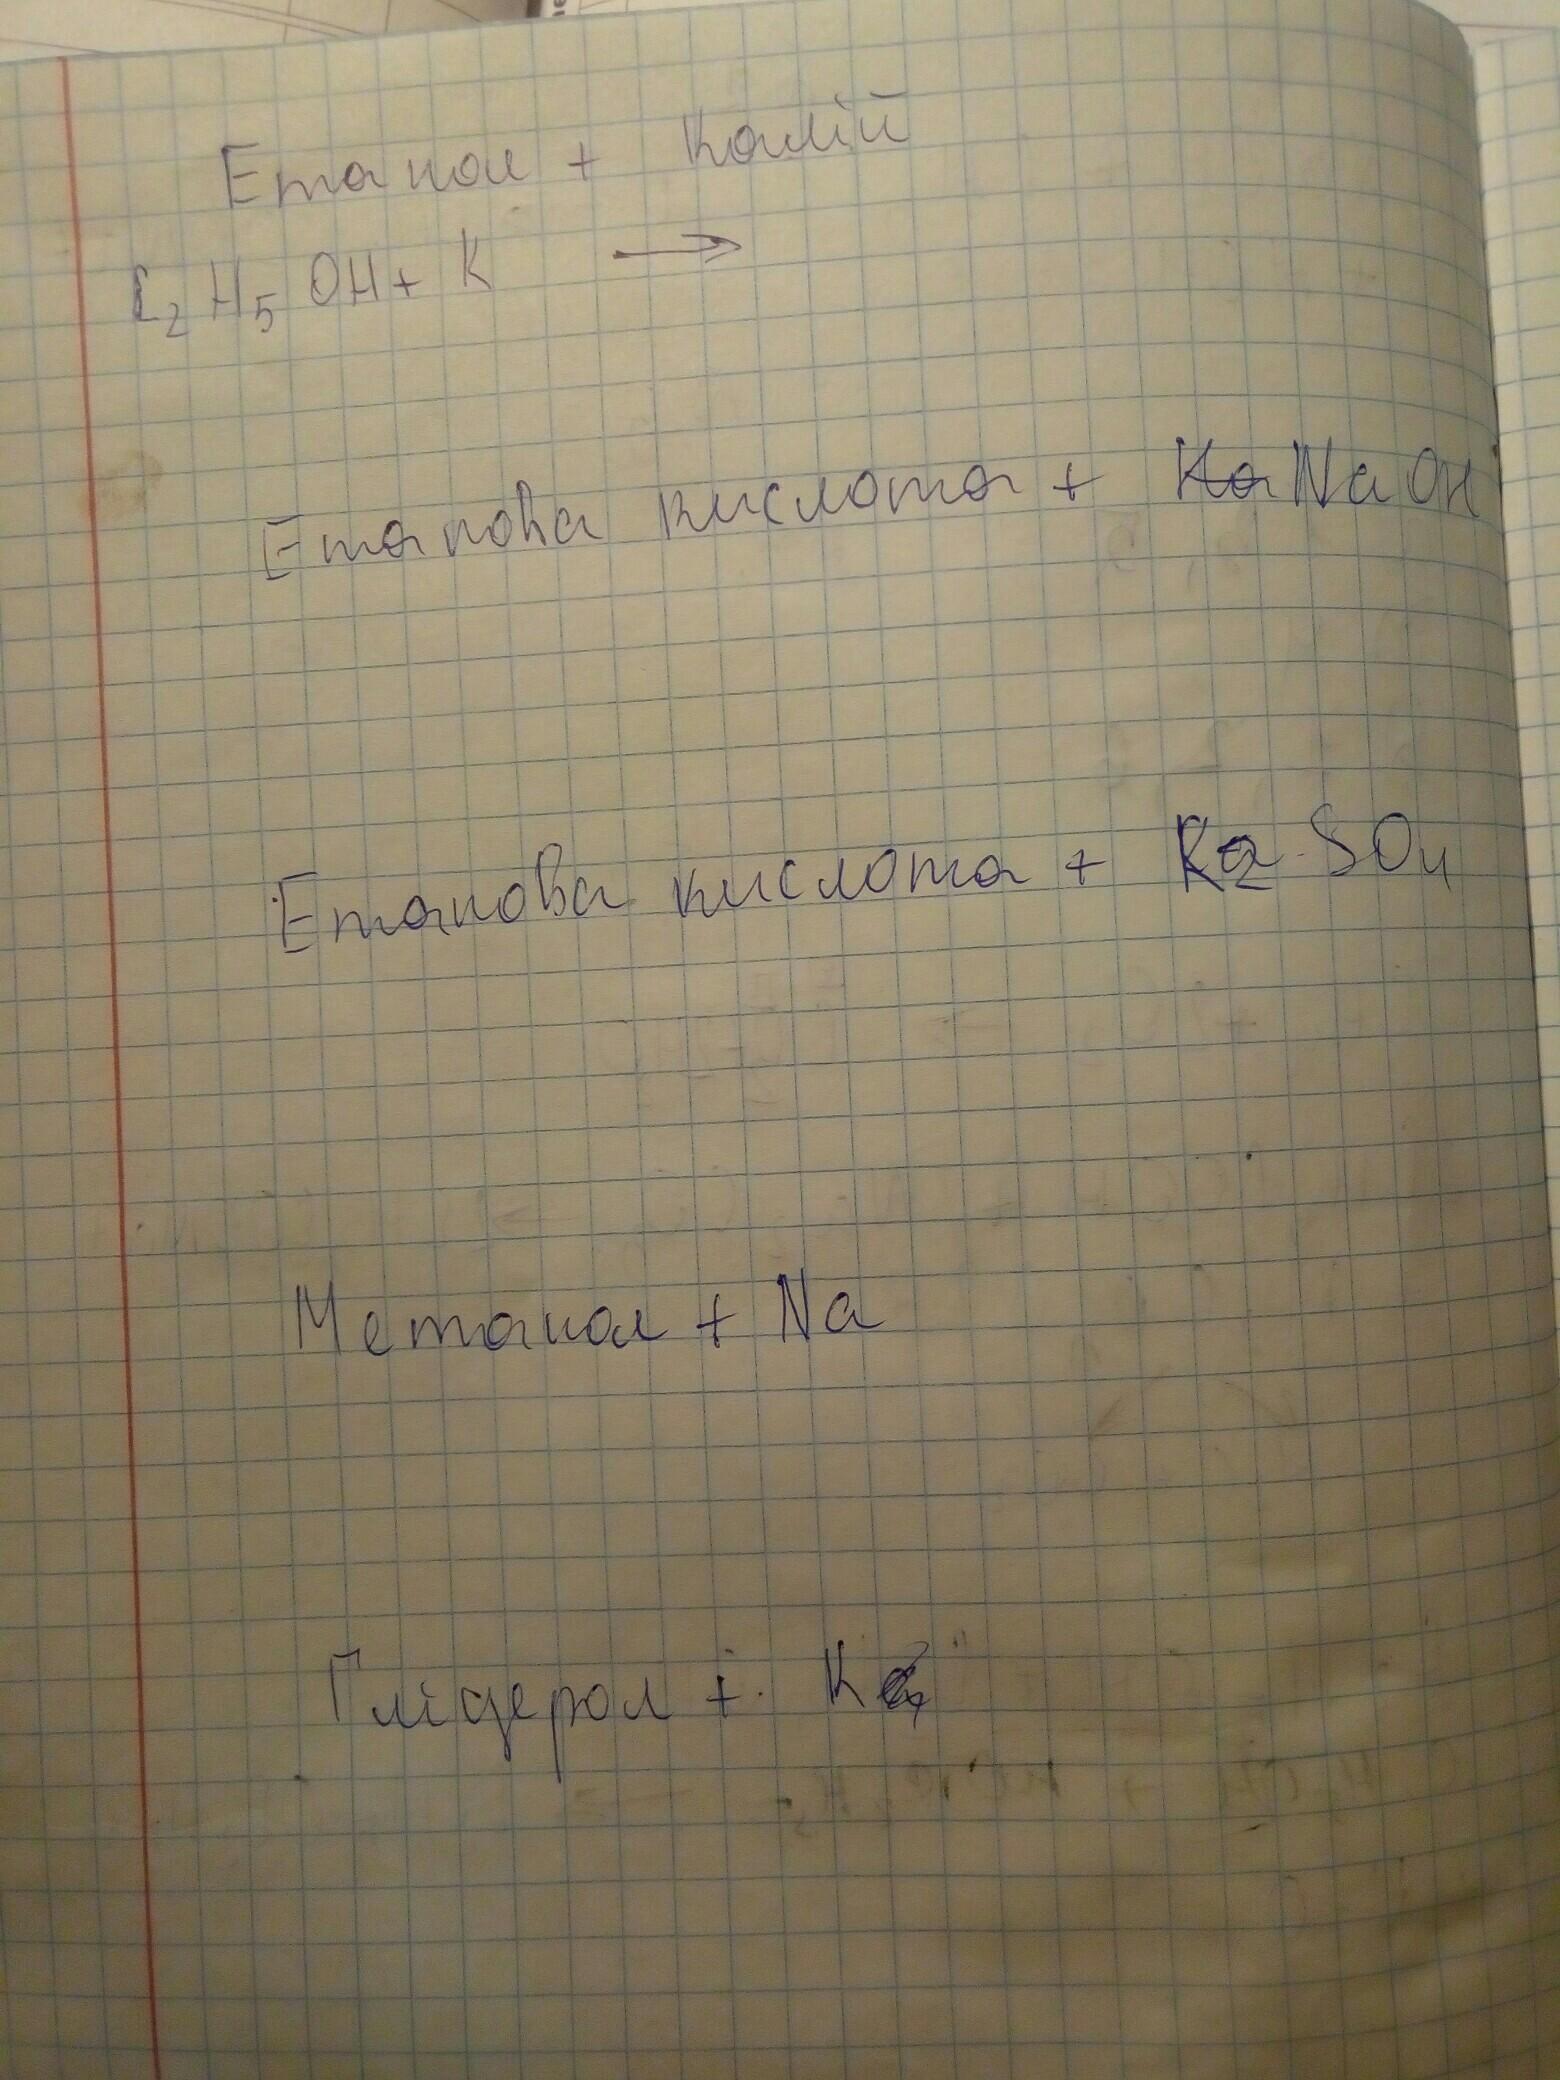 Етанол + Калій
C₂H₅OH + K →
Етанова кислота + NaOH
Етанова кислота + K₂SO₄
Метанол + Na
Гліцерол + K